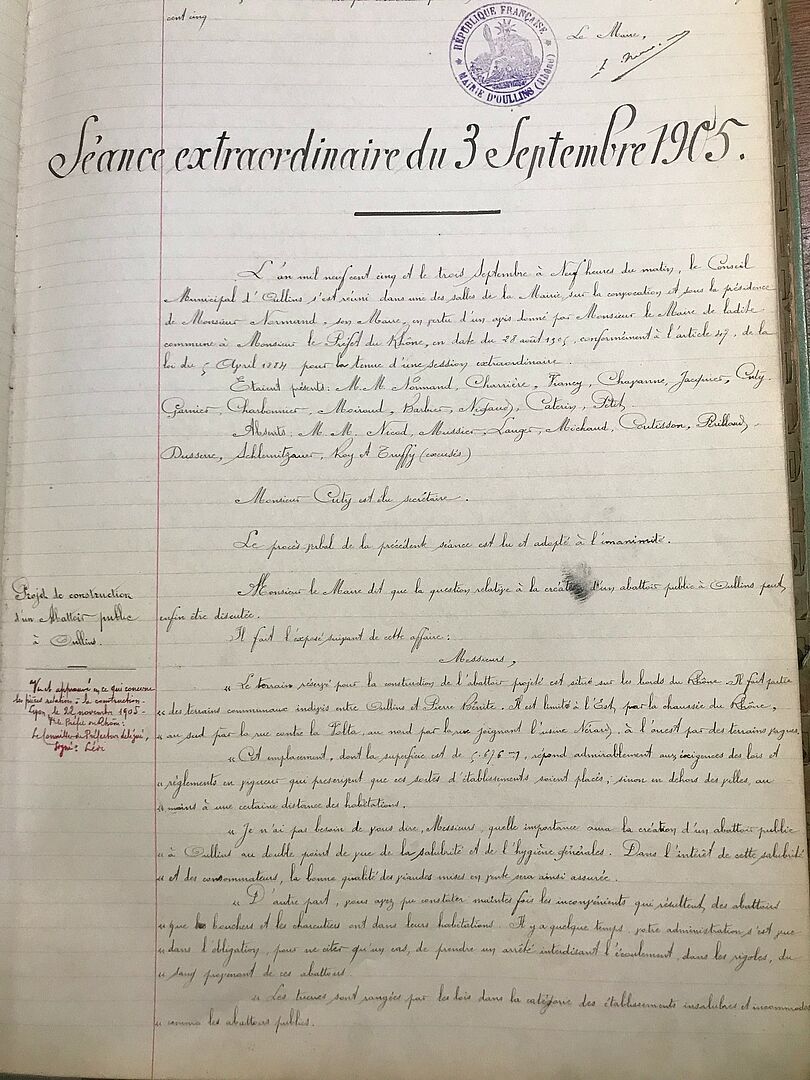 cent cinq
Le Maire,
RÉPUBLIQUE FRANÇAISE
MAIRIE D'OULLINS (Rhône)
Séance extraordinaire du 3 Septembre 1905.
L'an mil neuf cent cinq et le trois Septembre à Neuf heures du matin, le Conseil
Municipal d'Oullins s'est réuni dans une des salles de la Mairie, sur la convocation et sous la présidence
de Monsieur Normand, son Maire, en vertu d'un avis donné par Monsieur le Maire de ladite
commune à Monsieur le Préfet du Rhône, en date du 28 août 1905, conformément à l'article 47, de la
loi du 5 April 1884 pour la tenue d'une session extraordinaire.
Etaient présents: M.M. Normand, Charrière, Francy, Chavanne, Jacquier, Cuty.
Garnier, Charbonnier, Moiroud, Barbier, Nigaud, Caterin, Petit,
Absents: M.M. Nicod, Mussier, Langer, Michaud, Coutisson, Perillaud,
Dusserre, Roy et Truffy (excusés)
Monsieur Cuty est élu secrétaire.
Le procès verbal de la précédente séance est lu et adopté à l'unanimité.
Projet de construction
d'un Abattoir public
à Oullins.
Monsieur le Maire dit que la question relative à la création d'un abattoir public à Oullins peut,
enfin être discutée.
Il fait l'exposé suivant de cette affaire:
Messieurs,
Vu et approuvé en ce qui concerne
les pièces relatives à la construction.
Lyon, le 22 novembre 1905.
Pr le Préfet du Rhône:
Le Conseiller de Préfecture délégué,
Signé:
« Le terrain réservé pour la construction de l'abattoir projeté est situé sur les bords du Rhône. Il fait partie
« des terrains communaux indivis entre Oullins et Pierre Bénite. Il est limité à l'Est, par la chaussée du Rhône,
« au sud par la rue contre la Volta, au nord par la rue joignant l'usine Nérard, à l'ouest par des terrains vagues.
« Cet emplacement, dont la superficie est de 5.676 m, répond admirablement aux exigences des lois et
« règlements en vigueur qui prescrivent que ces sortes d'établissements soient placés, sinon en dehors des villes, au
« moins à une certaine distance des habitations.
« Je n'ai pas besoin de vous dire, Messieurs, quelle importance aura la création d'un abattoir public
« à Oullins au double point de vue de la salubrité et de l'hygiène générales. Dans l'intérêt de cette salubrité
« et des consommateurs, la bonne qualité des viandes mises en vente sera ainsi assurée.
« D'autre part, vous avez pu constater maintes fois les inconvénients qui résultent, des abattoirs
« que les bouchers et les charcutiers ont dans leurs habitations. Il y a quelque temps, votre administration s'est vue
« dans l'obligation, pour ne citer qu'un cas, de prendre un arrêté interdisant l'écoulement, dans les rigoles, du
« sang provenant de ces abattoirs.
« Les tueries sont rangées par les lois dans la catégorie des établissements insalubres et incommodes
« comme les abattoirs publics.